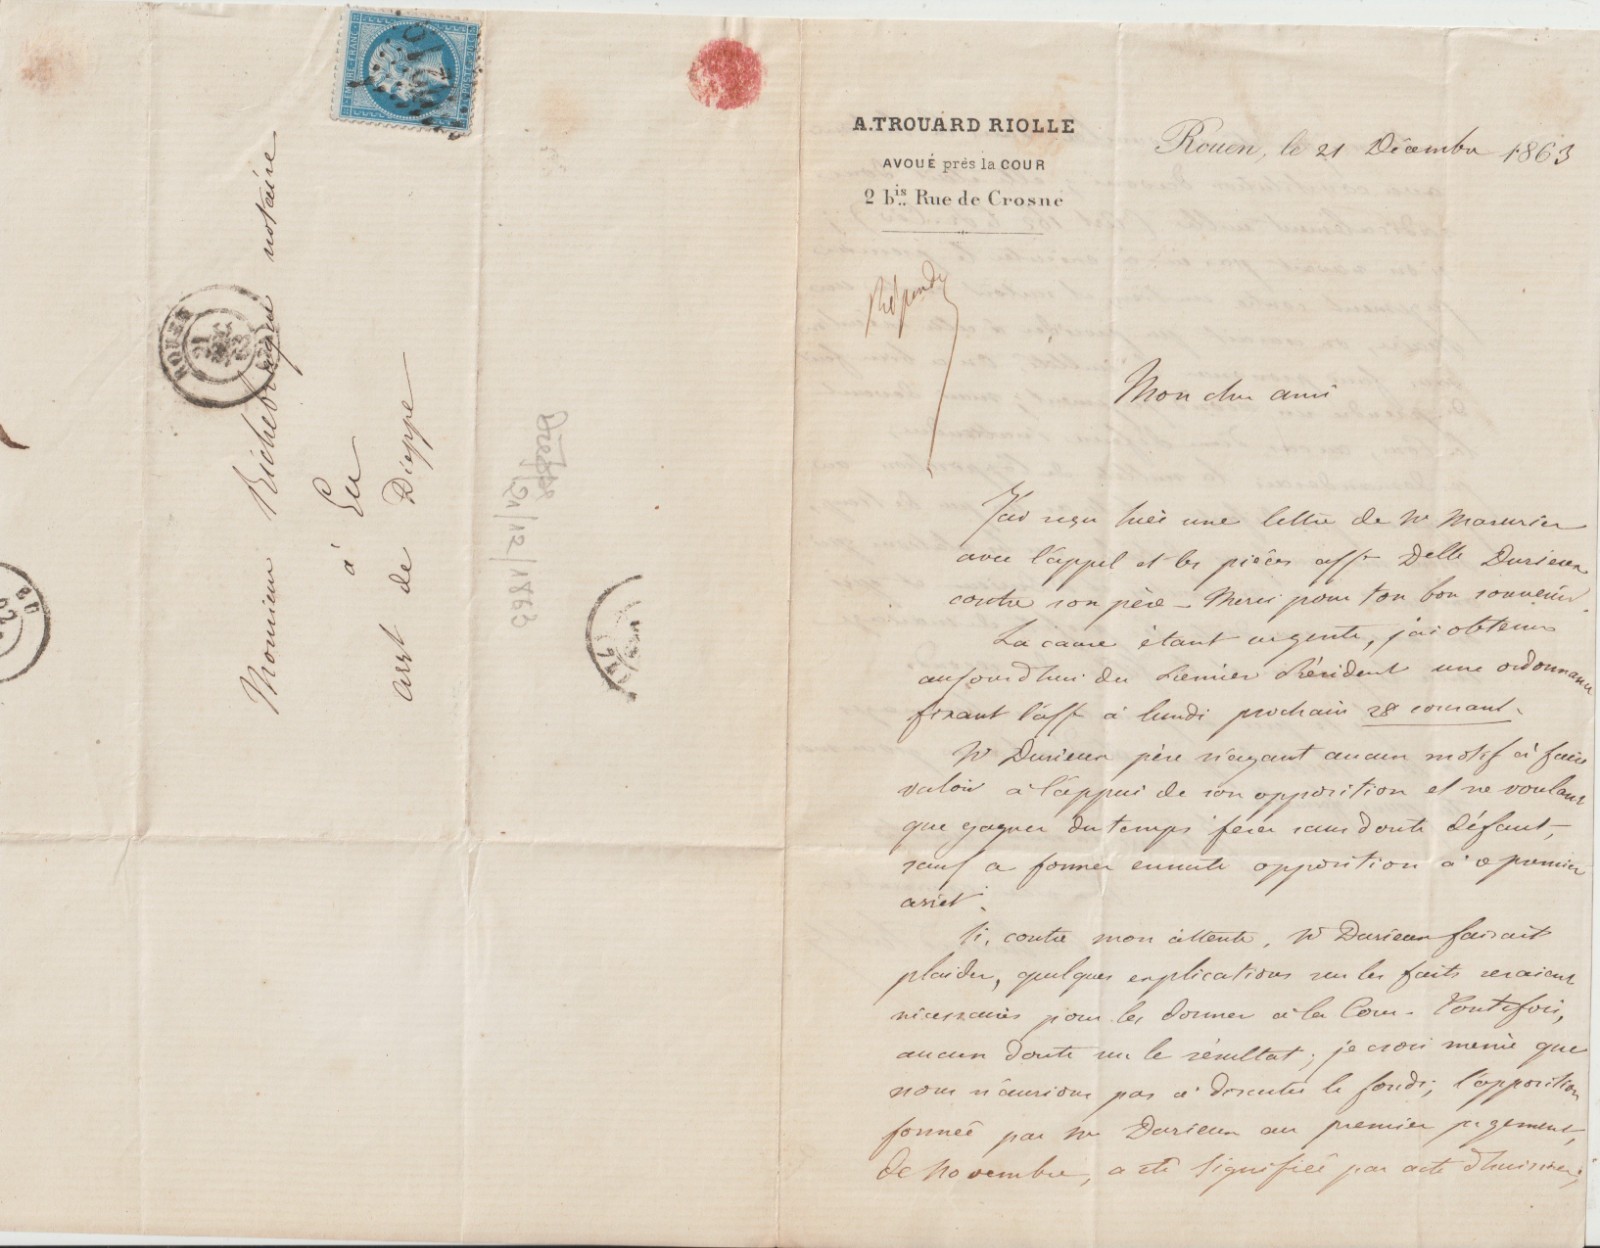 EMPIRE FRANC
Monsieur Richebraques notaire
à Eu
arrt de Dieppe
ROUEN
21
Dieppe
21/12/1863
EU
A. TROUARD RIOLLE
AVOUÉ près la COUR
2 bis Rue de Crosne
Rouen, le 21 Décembre 1863
Répondu
Mon cher ami
J'ai reçu hier une lettre de Mr Masurier
avec l'appel et les pièces aff. Delle Darieux
contre son père - Merci pour ton bon souvenir.
La cause étant urgente, j'ai obtenu
aujourd'hui du Premier Président une ordonnance
fixant l'aff. à lundi prochain 28 courant.
Mr Darieux père n'ayant aucun motif à faire
valoir à l'appui de son opposition et ne voulant
que gagner du temps fera sans doute défaut,
sauf a former ensuite opposition à ce premier
arrêt.
Si, contre mon attente, Mr Darieux faisait
plaider, quelques explications sur les faits seraient
nécessaires pour les donner à la Cour. Toutefois,
aucun doute sur le résultat; je crois même que
nous n'aurions pas à discuter le fonds; l'opposition
formée par Mr Darieux au premier jugement,
de Novembre, a été signifiée par acte d'huissier;